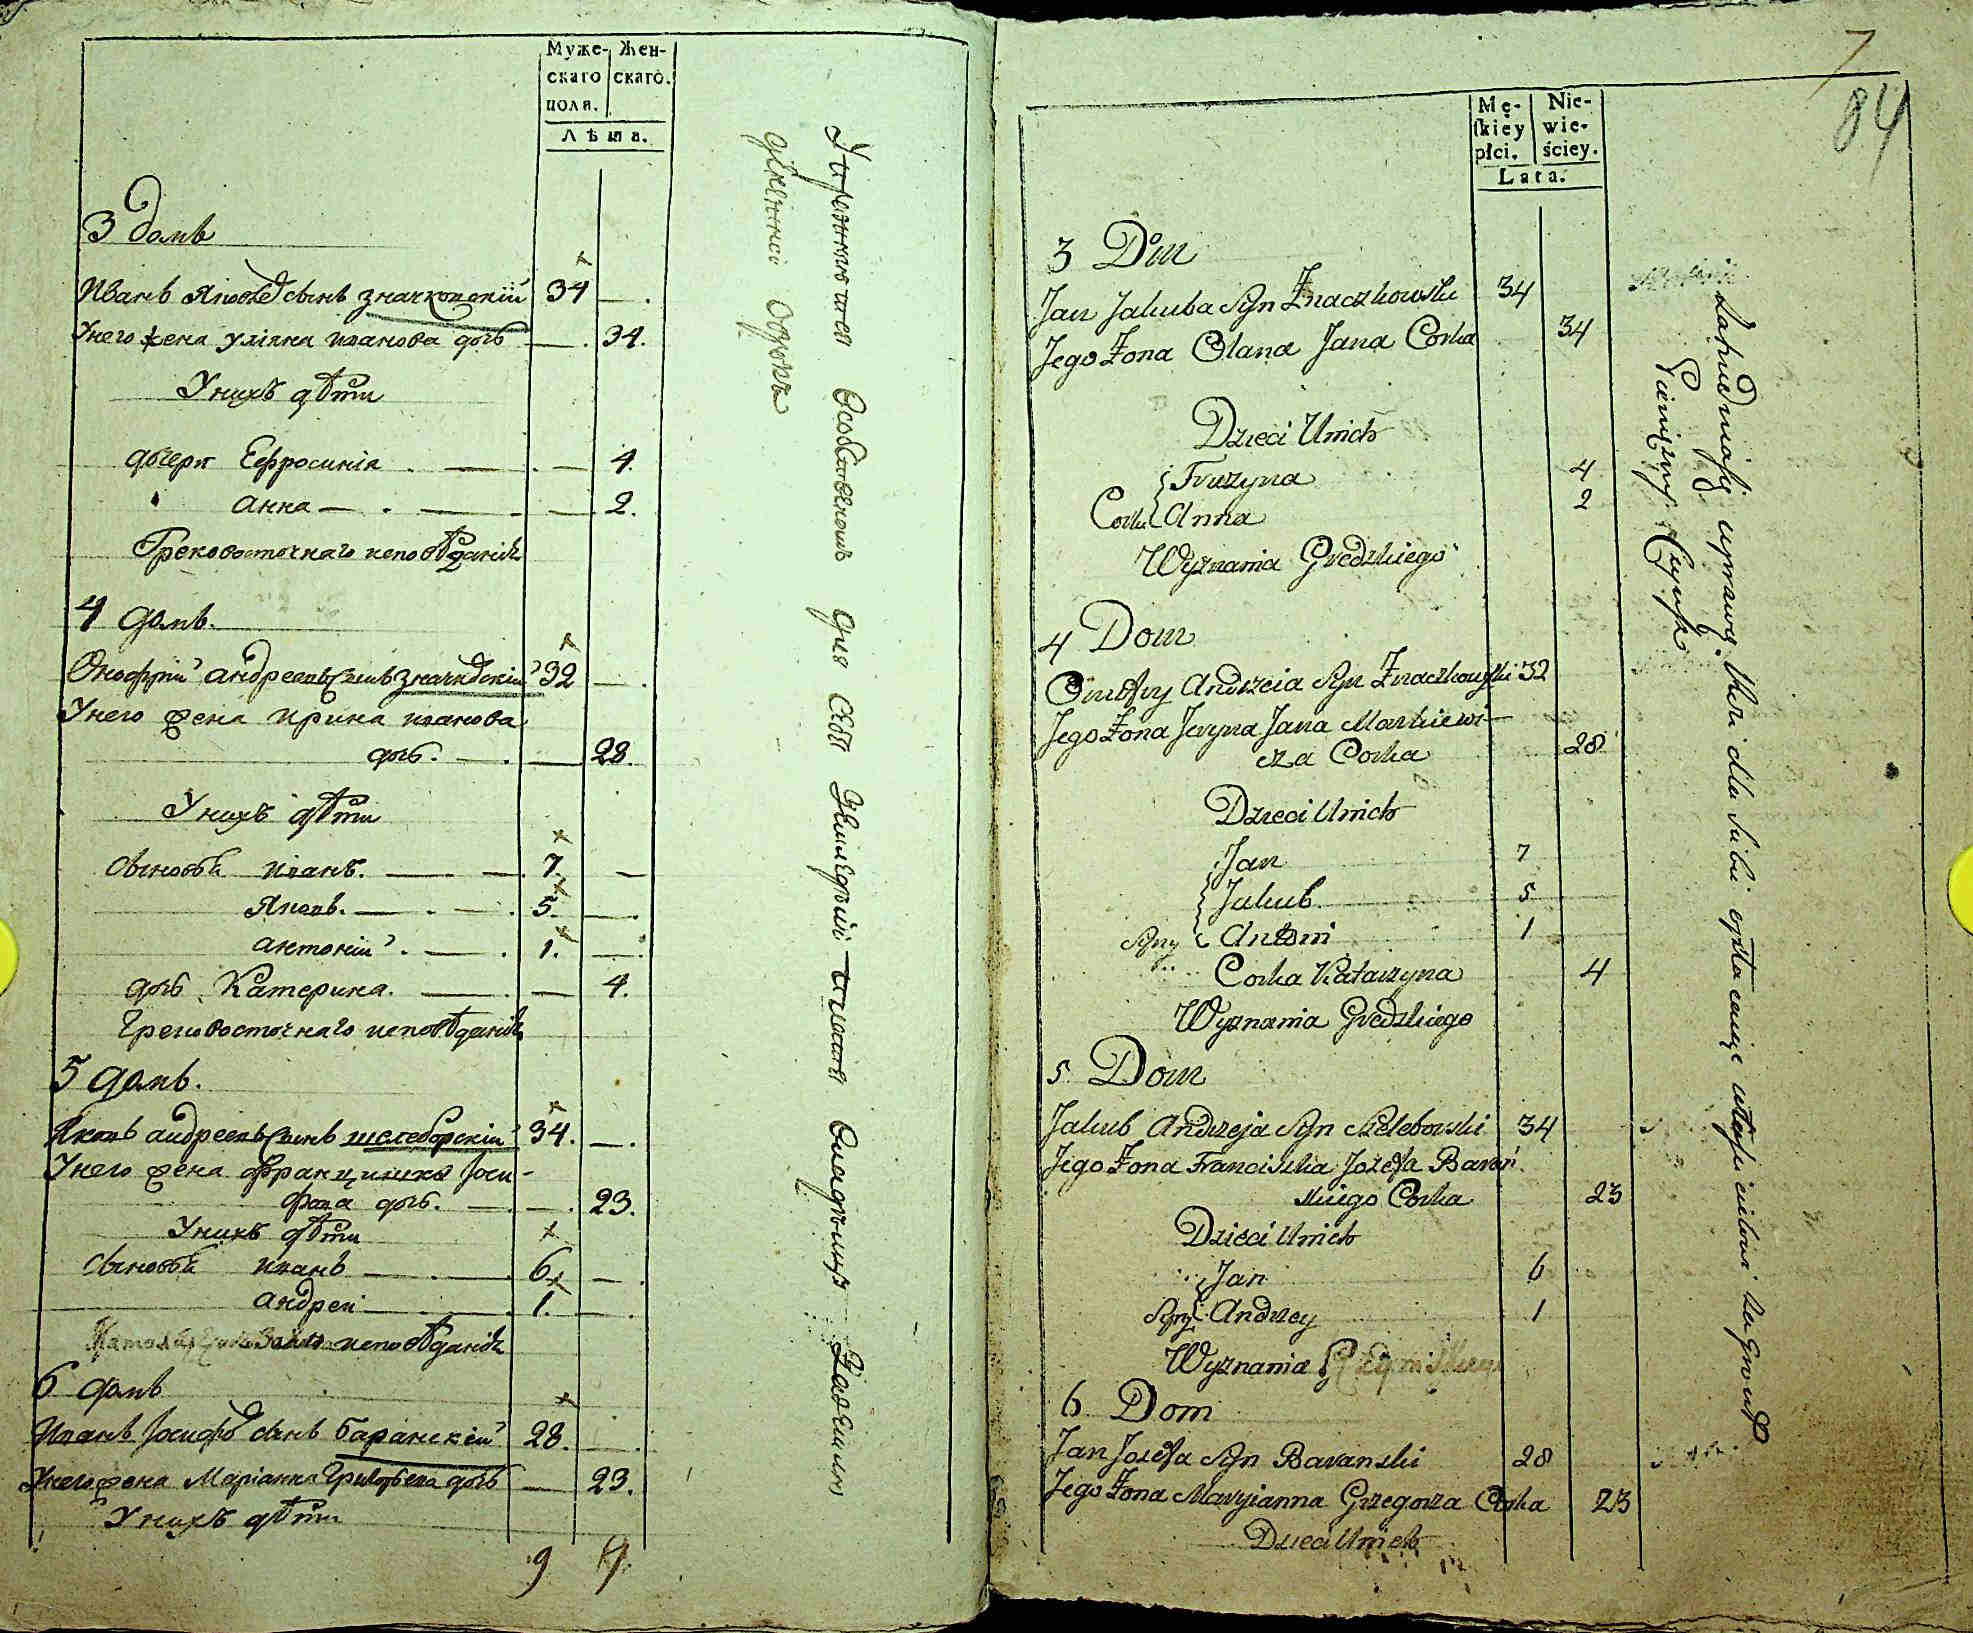 Муже-
скаго
пола.
Жен-
скаго.
Лѣта.
3 домъ
Иванъ Яковлев сынъ Значковскій 34
У него жена Уліяна Иванова дочь 34.
У нихъ дѣти
дочери Ефросинія 4.
Анна 2.
Грековосточнаго исповѣданія
4 домъ.
Онофрій Андреевъ сынъ Значковскій 32
У него жена Ирина Иванова
дочь. 28.
У нихъ дѣти
сыновья Иванъ. 7.
Яковъ. 5.
Антоній. 1.
дочь Катерина. 4.
Грековосточнаго исповѣданія
5 домъ.
Яковъ Андреевъ сынъ Шелеборскій 34.
У него жена Францишка Іоси-
фова дочь. 23.
У нихъ дѣти
сыновья Иванъ 6.
Андрей 1.
исповѣданія
6 домъ
Иванъ Іосифов сынъ Баранскій 28.
У него жена Маріанна Григорьева дочь 23.
У нихъ дѣти
9 9.
Упражняются особственомъ для себя
денной
7
84
Mę-
skiey
płci.
Nie-
wie-
ściey.
Lata.
3 Dom
Jan Jakuba Syn Znaczkowski 34
Jego Żona Olana Jana Corka 34
Dzieci Unich
Fruzyna 4
Corki Anna 2
Wyznania Gredzkiego
4 Dom
Onufry Andrzeia Syn Znaczkowski 32
Jego Żona Jeryna Jana Markiewi-
cza Corka 28
Dzieci Unich
Jan 7
Jakub 5
Syny Antoni 1
Corka Katarzyna 4
Wyznania Gredzkiego
5 Dom
Jakub Andrzeja Syn Szeleborski 34
Jego Żona Franciszka Jozefa Barań
skiego Corka 23
Dzieci Unich
Jan 6
Syny Andrzey 1
Wyznania
6 Dom
Jan Jozefa Syn Baranski 28
Jego Żona Maryianna Grzegorza Corka 23
Dzieci Unich
Zatrudniają uprawą Roli dla siebie opłacając
Pieniężny Czynsz